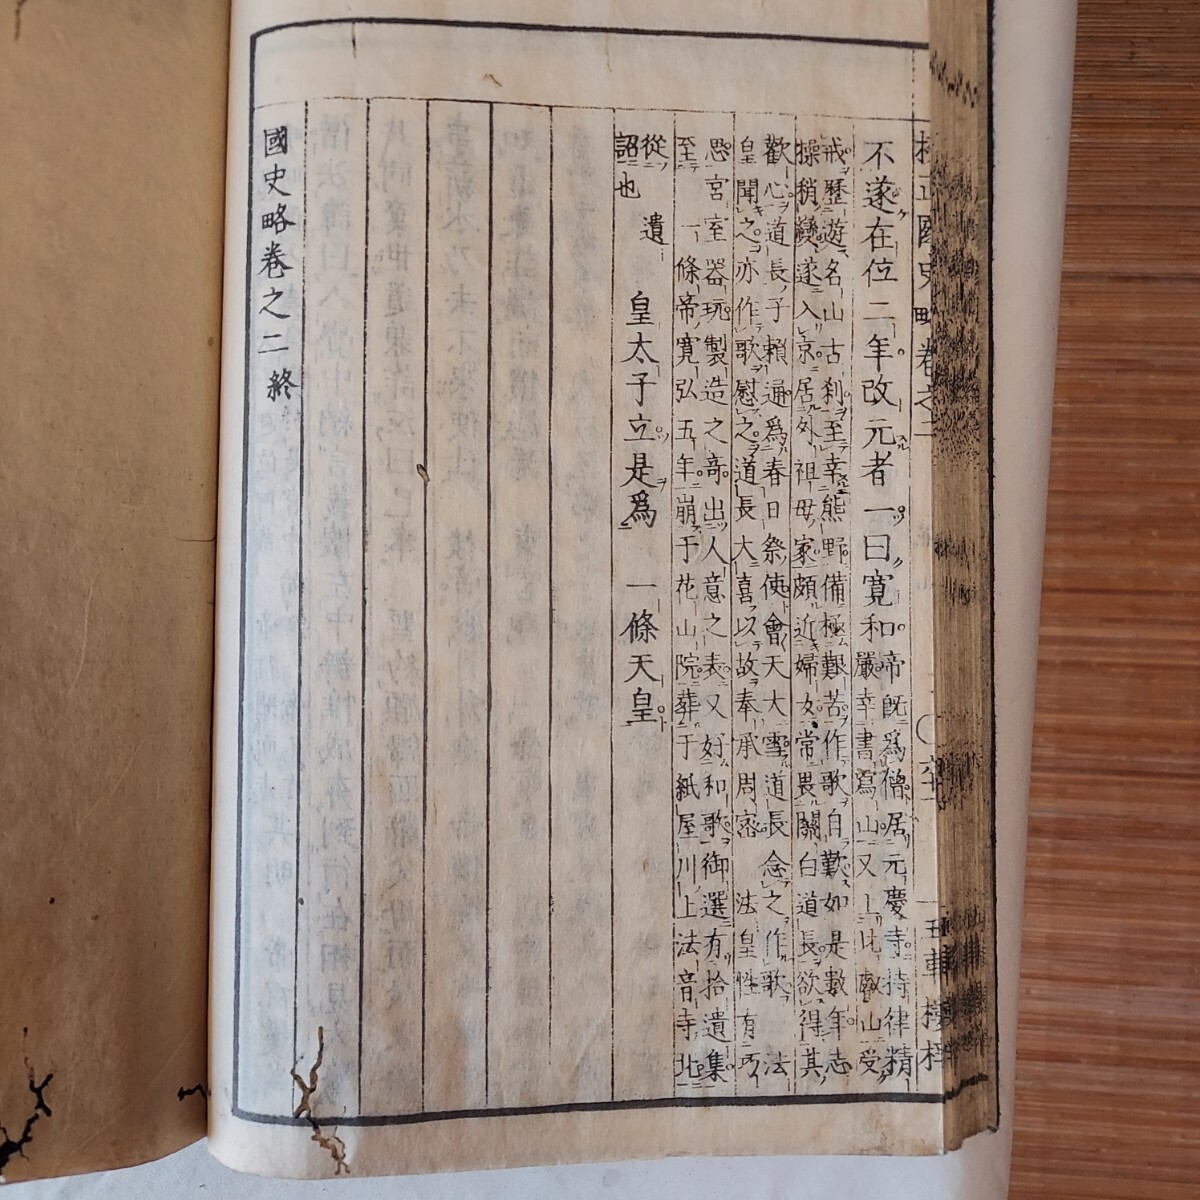 校正國史略卷之二 五車樓梓
不遂在位二年改元者一曰寬和
帝既爲僧居元慶寺持律精
嚴幸書寫山又上比叡山受
戒歷遊名山古刹至幸熊野備極艱苦作歌自歎如是數年志
操稍變遂入京居外祖母家頗近婦女常畏關白道長欲得其
歡心道長子賴通爲春日祭使會天大雪道長念之作歌法
皇聞之亦作歌慰之道長大喜以故奉承周密 法皇性有巧
思宮室器玩製造之奇出人意之表又好和歌御選有拾遺集
至 一條帝寬弘五年崩于花山院葬于紙屋川上法音寺北
從 遺
詔也
皇太子立是爲 一條天皇
國史略卷之二終